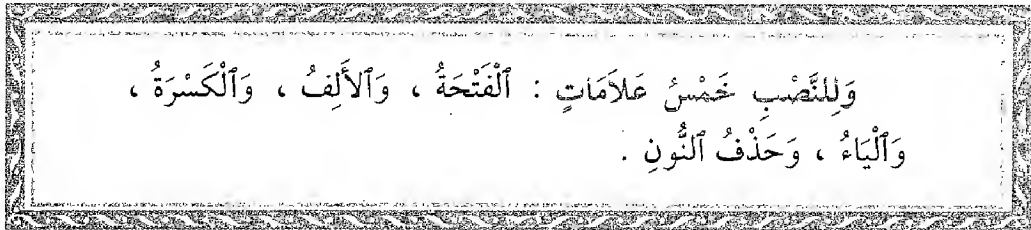 وَلِلنَّصْبِ خَمْسُ عَلاَمَاتٍ : ٱلْفَتْحَةُ ، وَٱلأَلِفُ ، وَٱلْكَسْرَةُ ،
وَٱلْيَاءُ ، وَحَذْفُ ٱلنُّونِ .